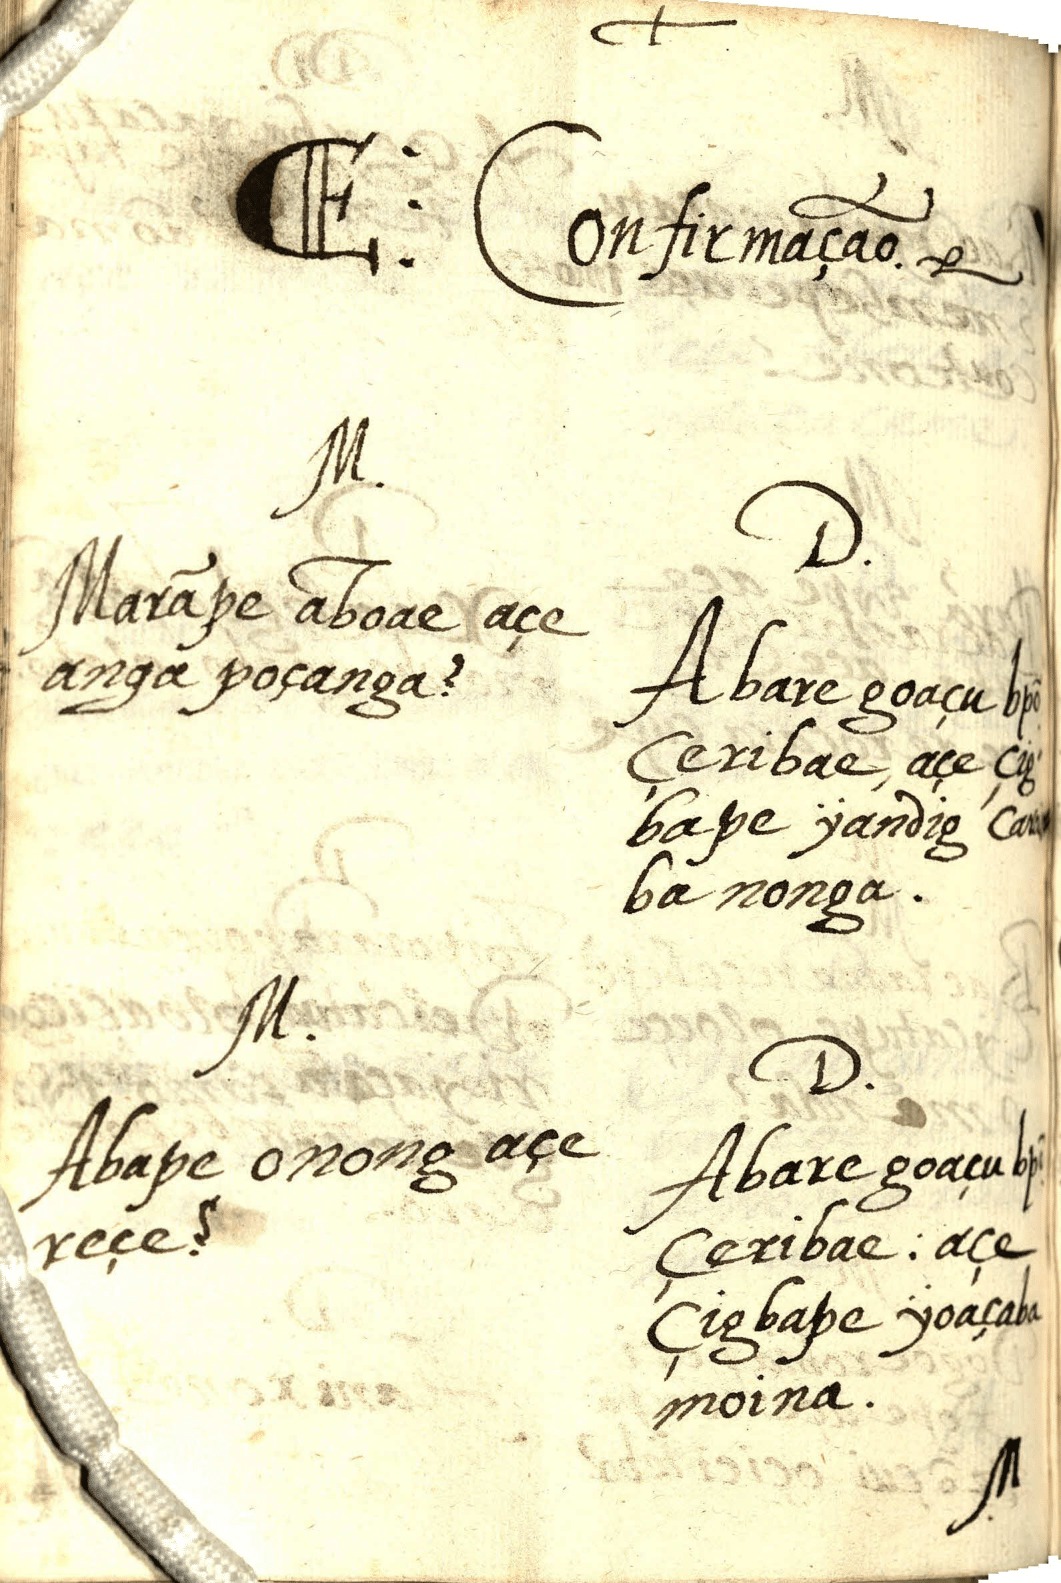 E: Confirmação.
M.
Marãpe aboae açe
anga poçanga?
D.
Abare goaçu bpõ
Çeribae, açe Çig
bape ÿandig Carai
ba nonga.
M.
Abape onong açe
reçe?
D.
Abare goaçu bpĩ
Çeribae: açe
Çigbape ÿoaçaba
moina.
M